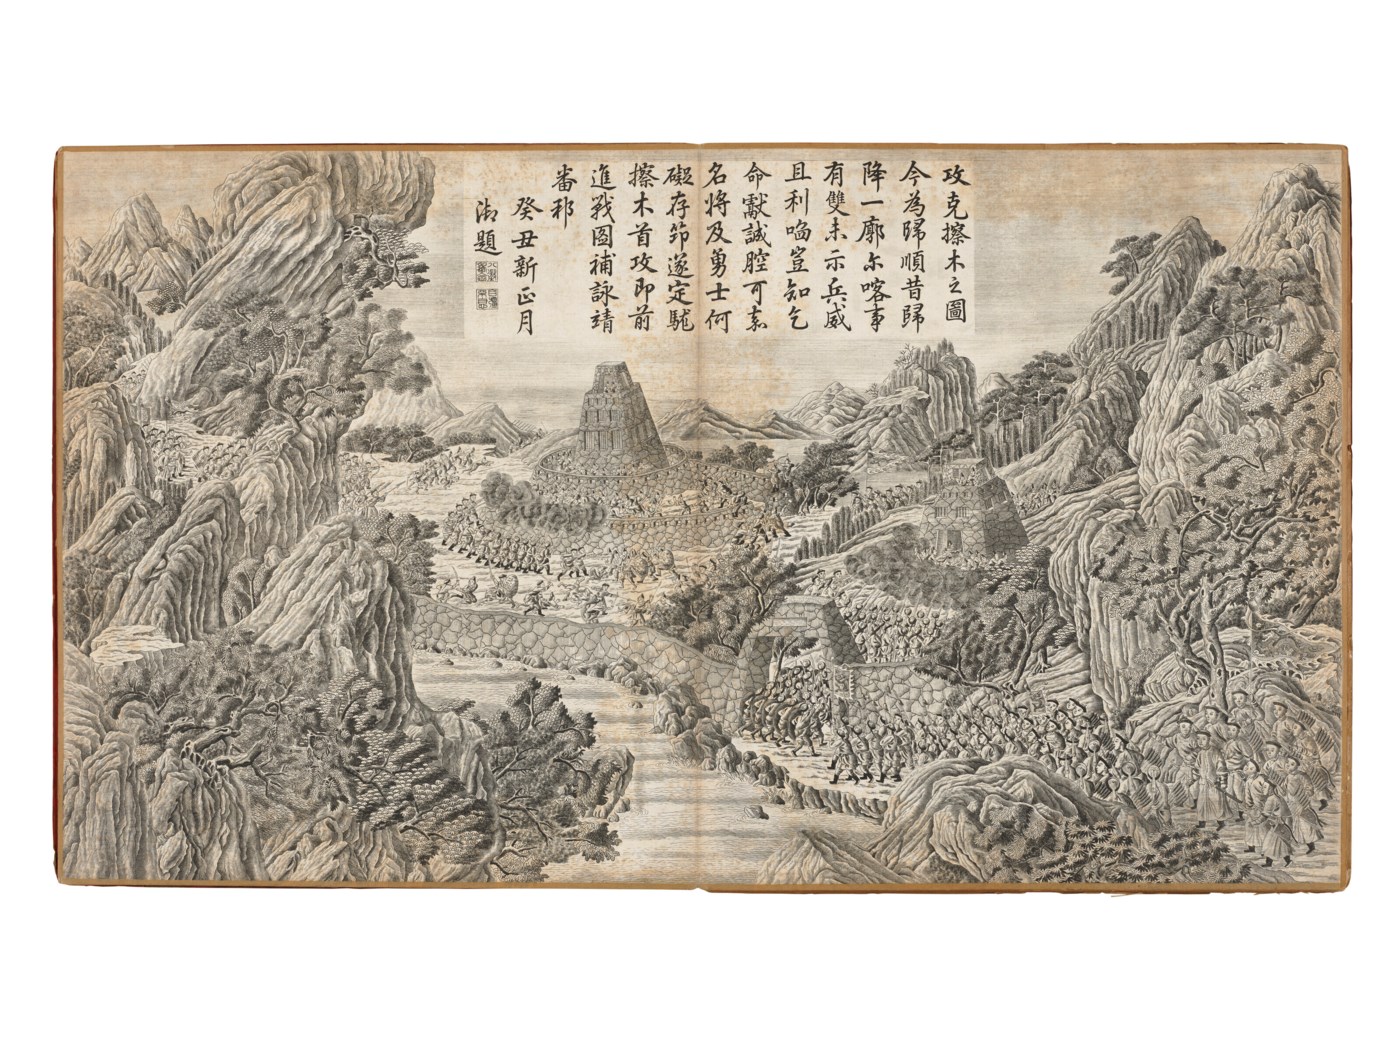 攻克擦木之圖
今為歸順昔歸
降一廓尒喀事
有雙未示兵威
且利啗豈知乞
命獻誠腔可嘉
名將及勇士何
礙存筇遂定駹
擦木首攻即前
進戰圖補詠靖
番邦
癸丑新正月
御題